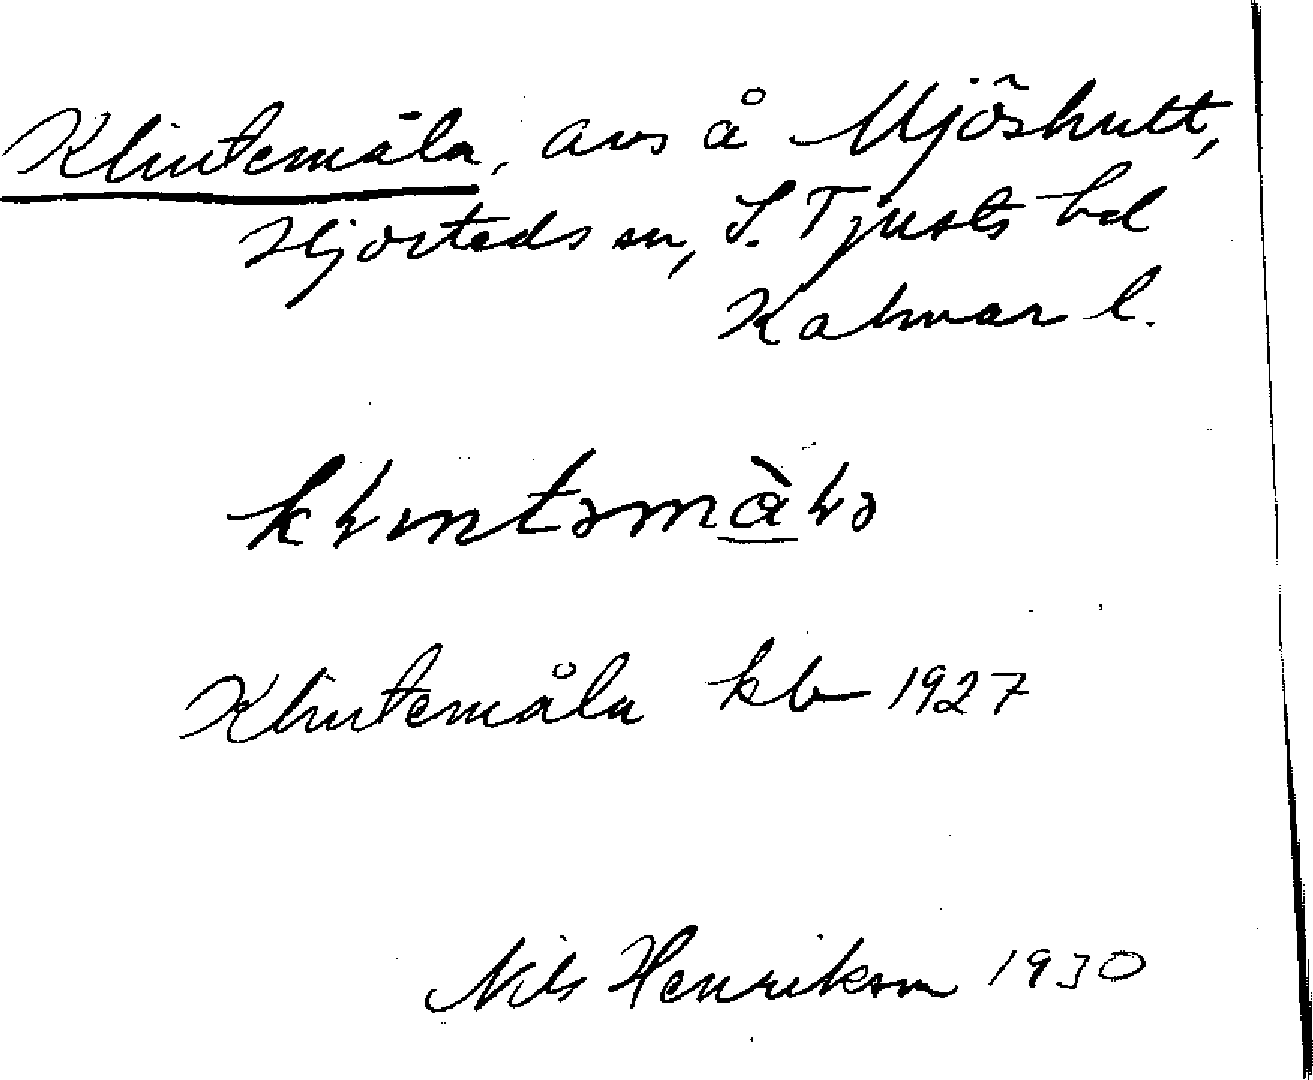 Klintemåla, avs å Mjöshult,
Hjorteds sn, S. Tjusts hd
Kalmar l.
Klintemåla kb 1927
Nils Henrikson 1930